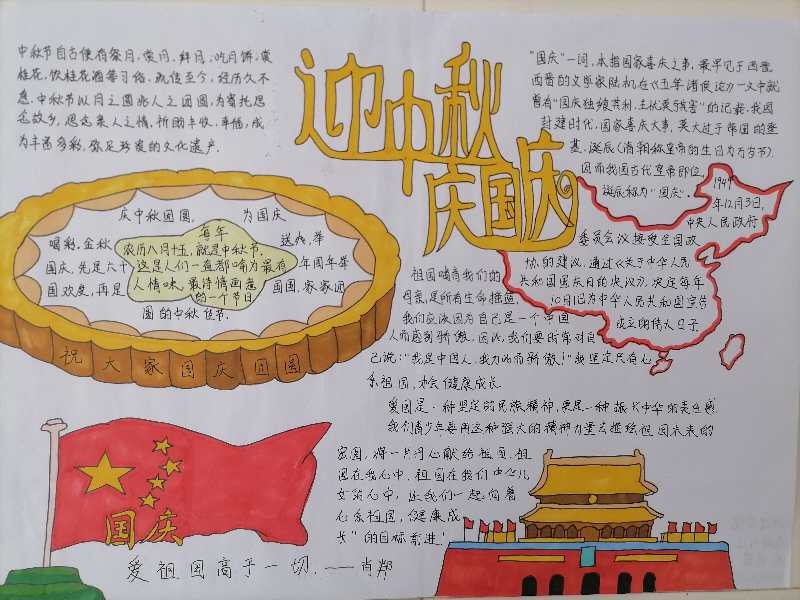 中秋节自古便有祭月,赏月,拜月,吃月饼,赏
桂花,饮桂花酒等习俗,流传至今,经历久不
息.中秋节以月之圆兆人之团圆,为寄托思
念故乡,思念亲人之情,祈盼丰收、幸福,成
为丰富多彩,弥足珍贵的文化遗产.
迎中秋
庆国庆
"国庆"一词,本指国家喜庆之事,最早见于西晋.
西晋的文学家陆机在《五等诸侯论》一文中就
曾有"国庆独飨其利,主忧莫与其害"的记载、我国
封建时代,国家喜庆大事,莫大过于帝国的登
基.诞辰(清朝称皇帝的生日为万岁节).
因而我国古代皇帝即位,
诞辰称为"国庆".
1949
年12月3日,
中央人民政府
委员会议接受全国政
协的建议,通过《关于中华人民
共和国国庆日的决议》,决定每年
10月1日为中华人民共和国宣告
成立的伟大日子
庆中秋团圆 为国庆
喝彩.金秋 送戏,举
国庆.先是六十 年周年举
国欢度,再是 国国.家家团
圆的中秋佳节.
每年
农历八月十五,就是中秋节.
这是人们一直都喻为最有
人情味、最诗情画意
的一个节日
祝大家国庆团圆
祖国哺育我们的
母亲,是所有生命摇篮,
我们应该因为自己是一个中国
人而感到骄傲.因此,我们要时常对自
己说:"我是中国人,我为此而骄傲!"我坚定只有心
系祖国,才会健康成长
爱国是一种坚定的民族精神,更是一种振兴中华的责任感
我们青少年要用这种强大的精神力量去描绘祖国未来的
宏图,将一片丹心献给祖国.祖
国在我心中,祖国在我们中华儿
女的心中,让我们一起向着"
心系祖国,健康成
长"的目标前进!
国庆
爱祖国高于一切.——肖邦